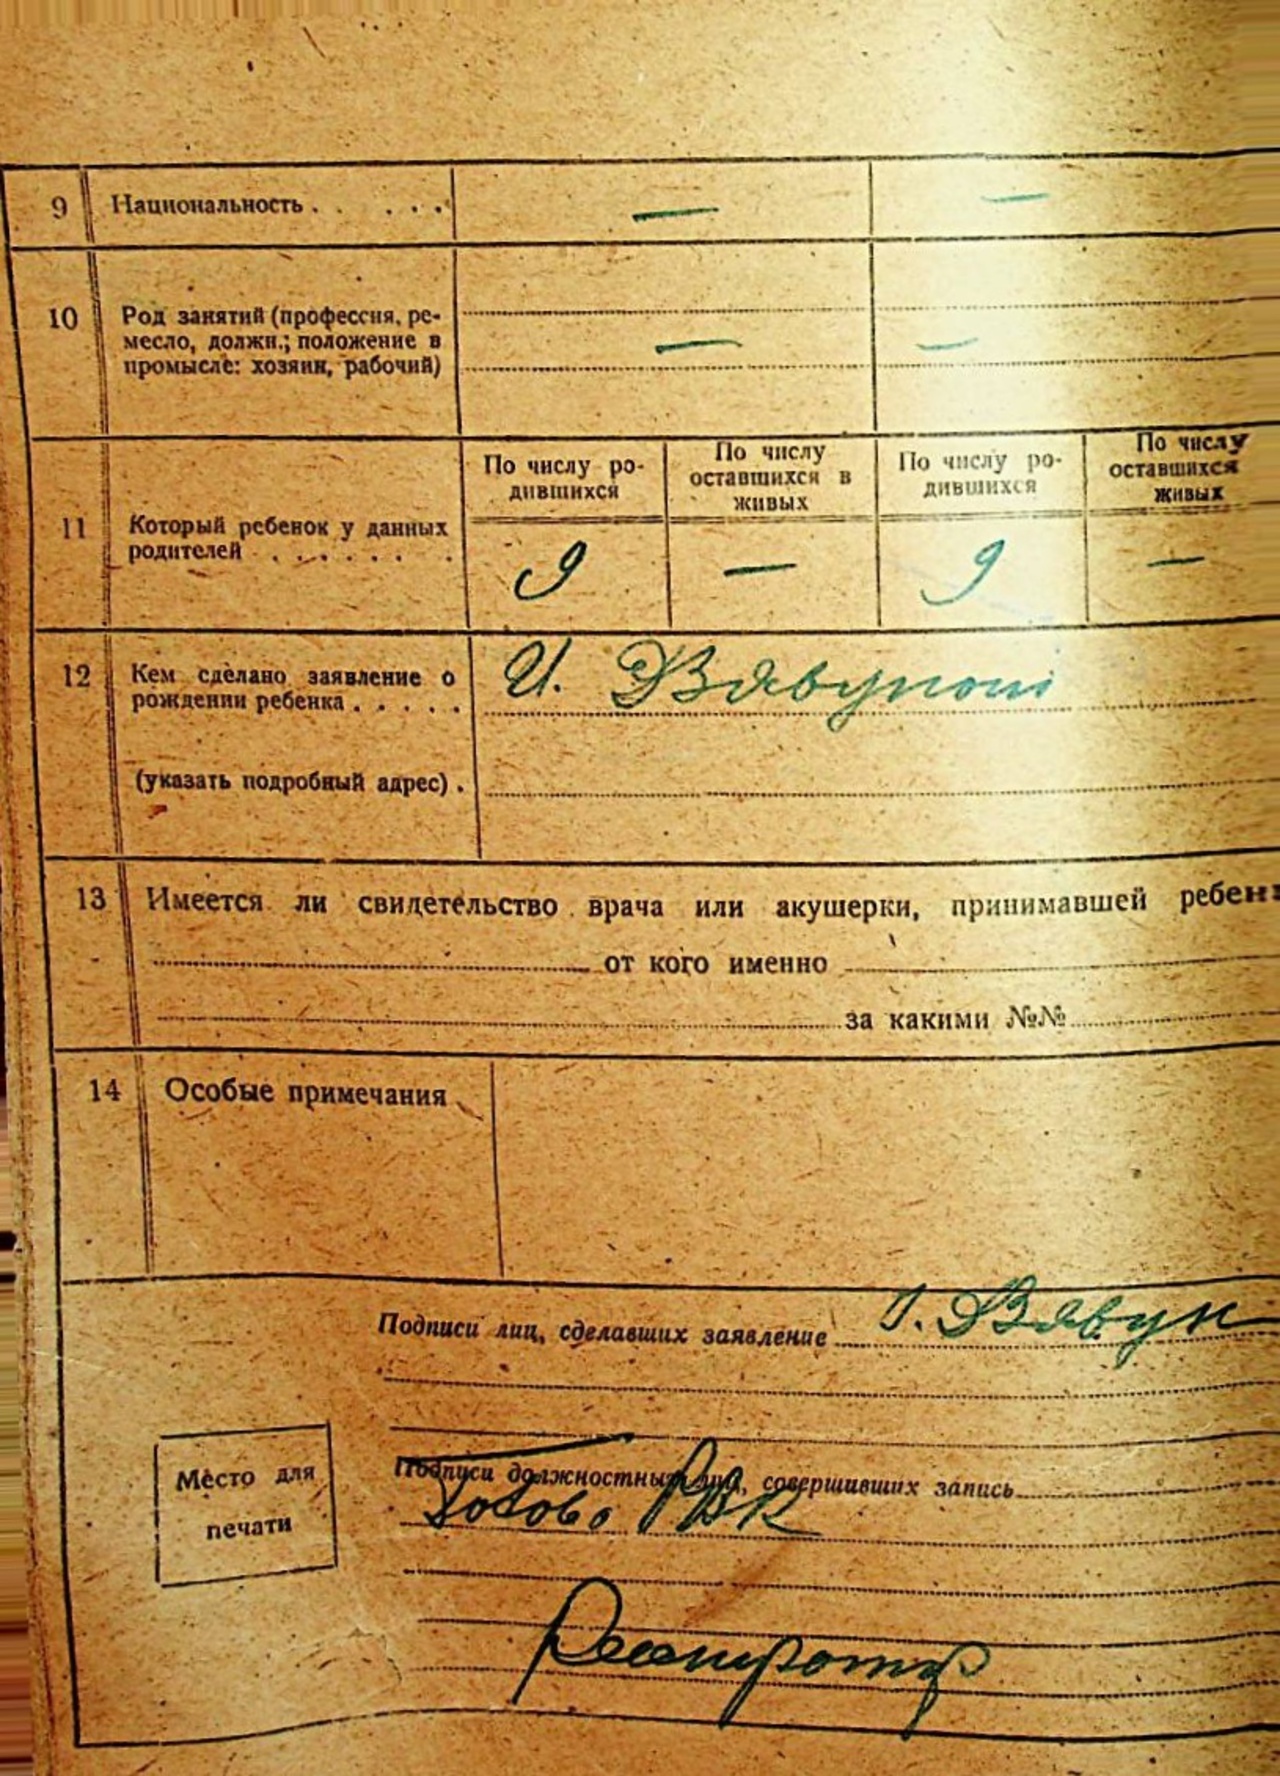 9 Национальность . . . . . — —
10 Род занятий (профессия, ре-
месло, должн.; положение в — —
промысле: хозяин, рабочий)
По числу ро- По числу По числу ро- По числу
дившихся оставшихся в дившихся оставшихся
живых живых
11 Который ребенок у данных
родителей . . . . . . . 9 — 9 —
12 Кем сделано заявление о И.
рождении ребенка . . . . .
(указать подробный адрес) .
13 Имеется ли свидетельство врача или акушерки, принимавшей
от кого именно
за какими №№
14 Особые примечания
Подписи лиц, сделавших заявление
Подписи должностных лиц, совершивших запись
Место для
печати